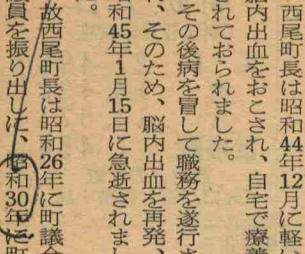 故西尾町長は昭和44年12月に軽い
脳内出血をおこされ、自宅で療養
されておられました。
その後病を冒して職務を遂行さ
、そのため、脳内出血を再発、
昭和45年1月15日に急逝されまし
。
故西尾町長は昭和26年に町議会
員を振り出しに、昭和30年に町